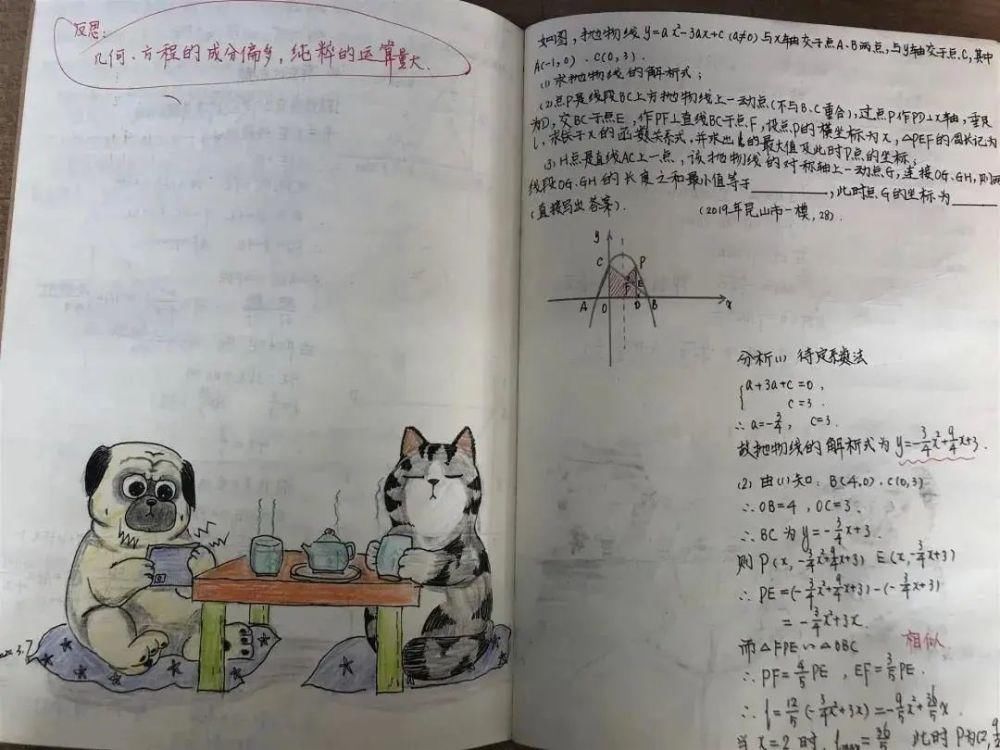 反思:
几何、方程的成分偏多,纯粹的运算量大.
如图,抛物线y=ax²-3ax+c(a≠0)与x轴交于点A、B两点,与y轴交于点C,其中
A(-1,0)、C(0,3).
(1)求抛物线的解析式;
(2)点P是线段BC上方抛物线上一动点(不与B、C重合),过点P作PD⊥x轴,垂足
为D,交BC于点E,作PF⊥直线BC于点F,设点P的横坐标为x,△PEF的周长记为
l,求l关于x的函数关系式,并求出l的最大值及此时P点的坐标;
(3)H点是直线AC上一点,该抛物线的对称轴上一动点G,连接OG、GH,则两
线段OG、GH的长度之和最小值等于________,此时点G的坐标为______
(直接写出答案).(2019年昆山市一模,28).
y
C P
F E
A O D B x
分析(1) 待定系数法
a+3a+c=0,
c=3.
∴a=-3/4, c=3.
故抛物线的解析式为y=-3/4x²+9/4x+3.
(2) 由(1)知:B(4,0)、C(0,3)
∴OB=4,OC=3.
∴BC为y=-3/4x+3.
则P(x,-3/4x²+9/4x+3) E(x,-3/4x+3)
∴PE=(-3/4x²+9/4x+3)-(-3/4x+3)
=-3/4x²+3x.
而△FPE∽△OBC 相似
∴PF=4/5PE,EF=3/5PE.
∴l=12/5(-3/4x²+3x)=-9/5x²+36/5x.
当x=2时,
此时P为(2,